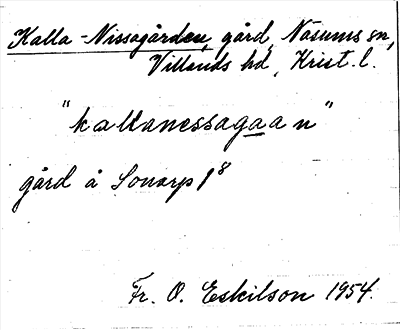 Kalla-Nissagården, gård, Näsums sn,
Villands hd, Krist. l.
"kallanessagaan"
gård å Sonarp 1⁸
Fr. O. Eskilson 1954.